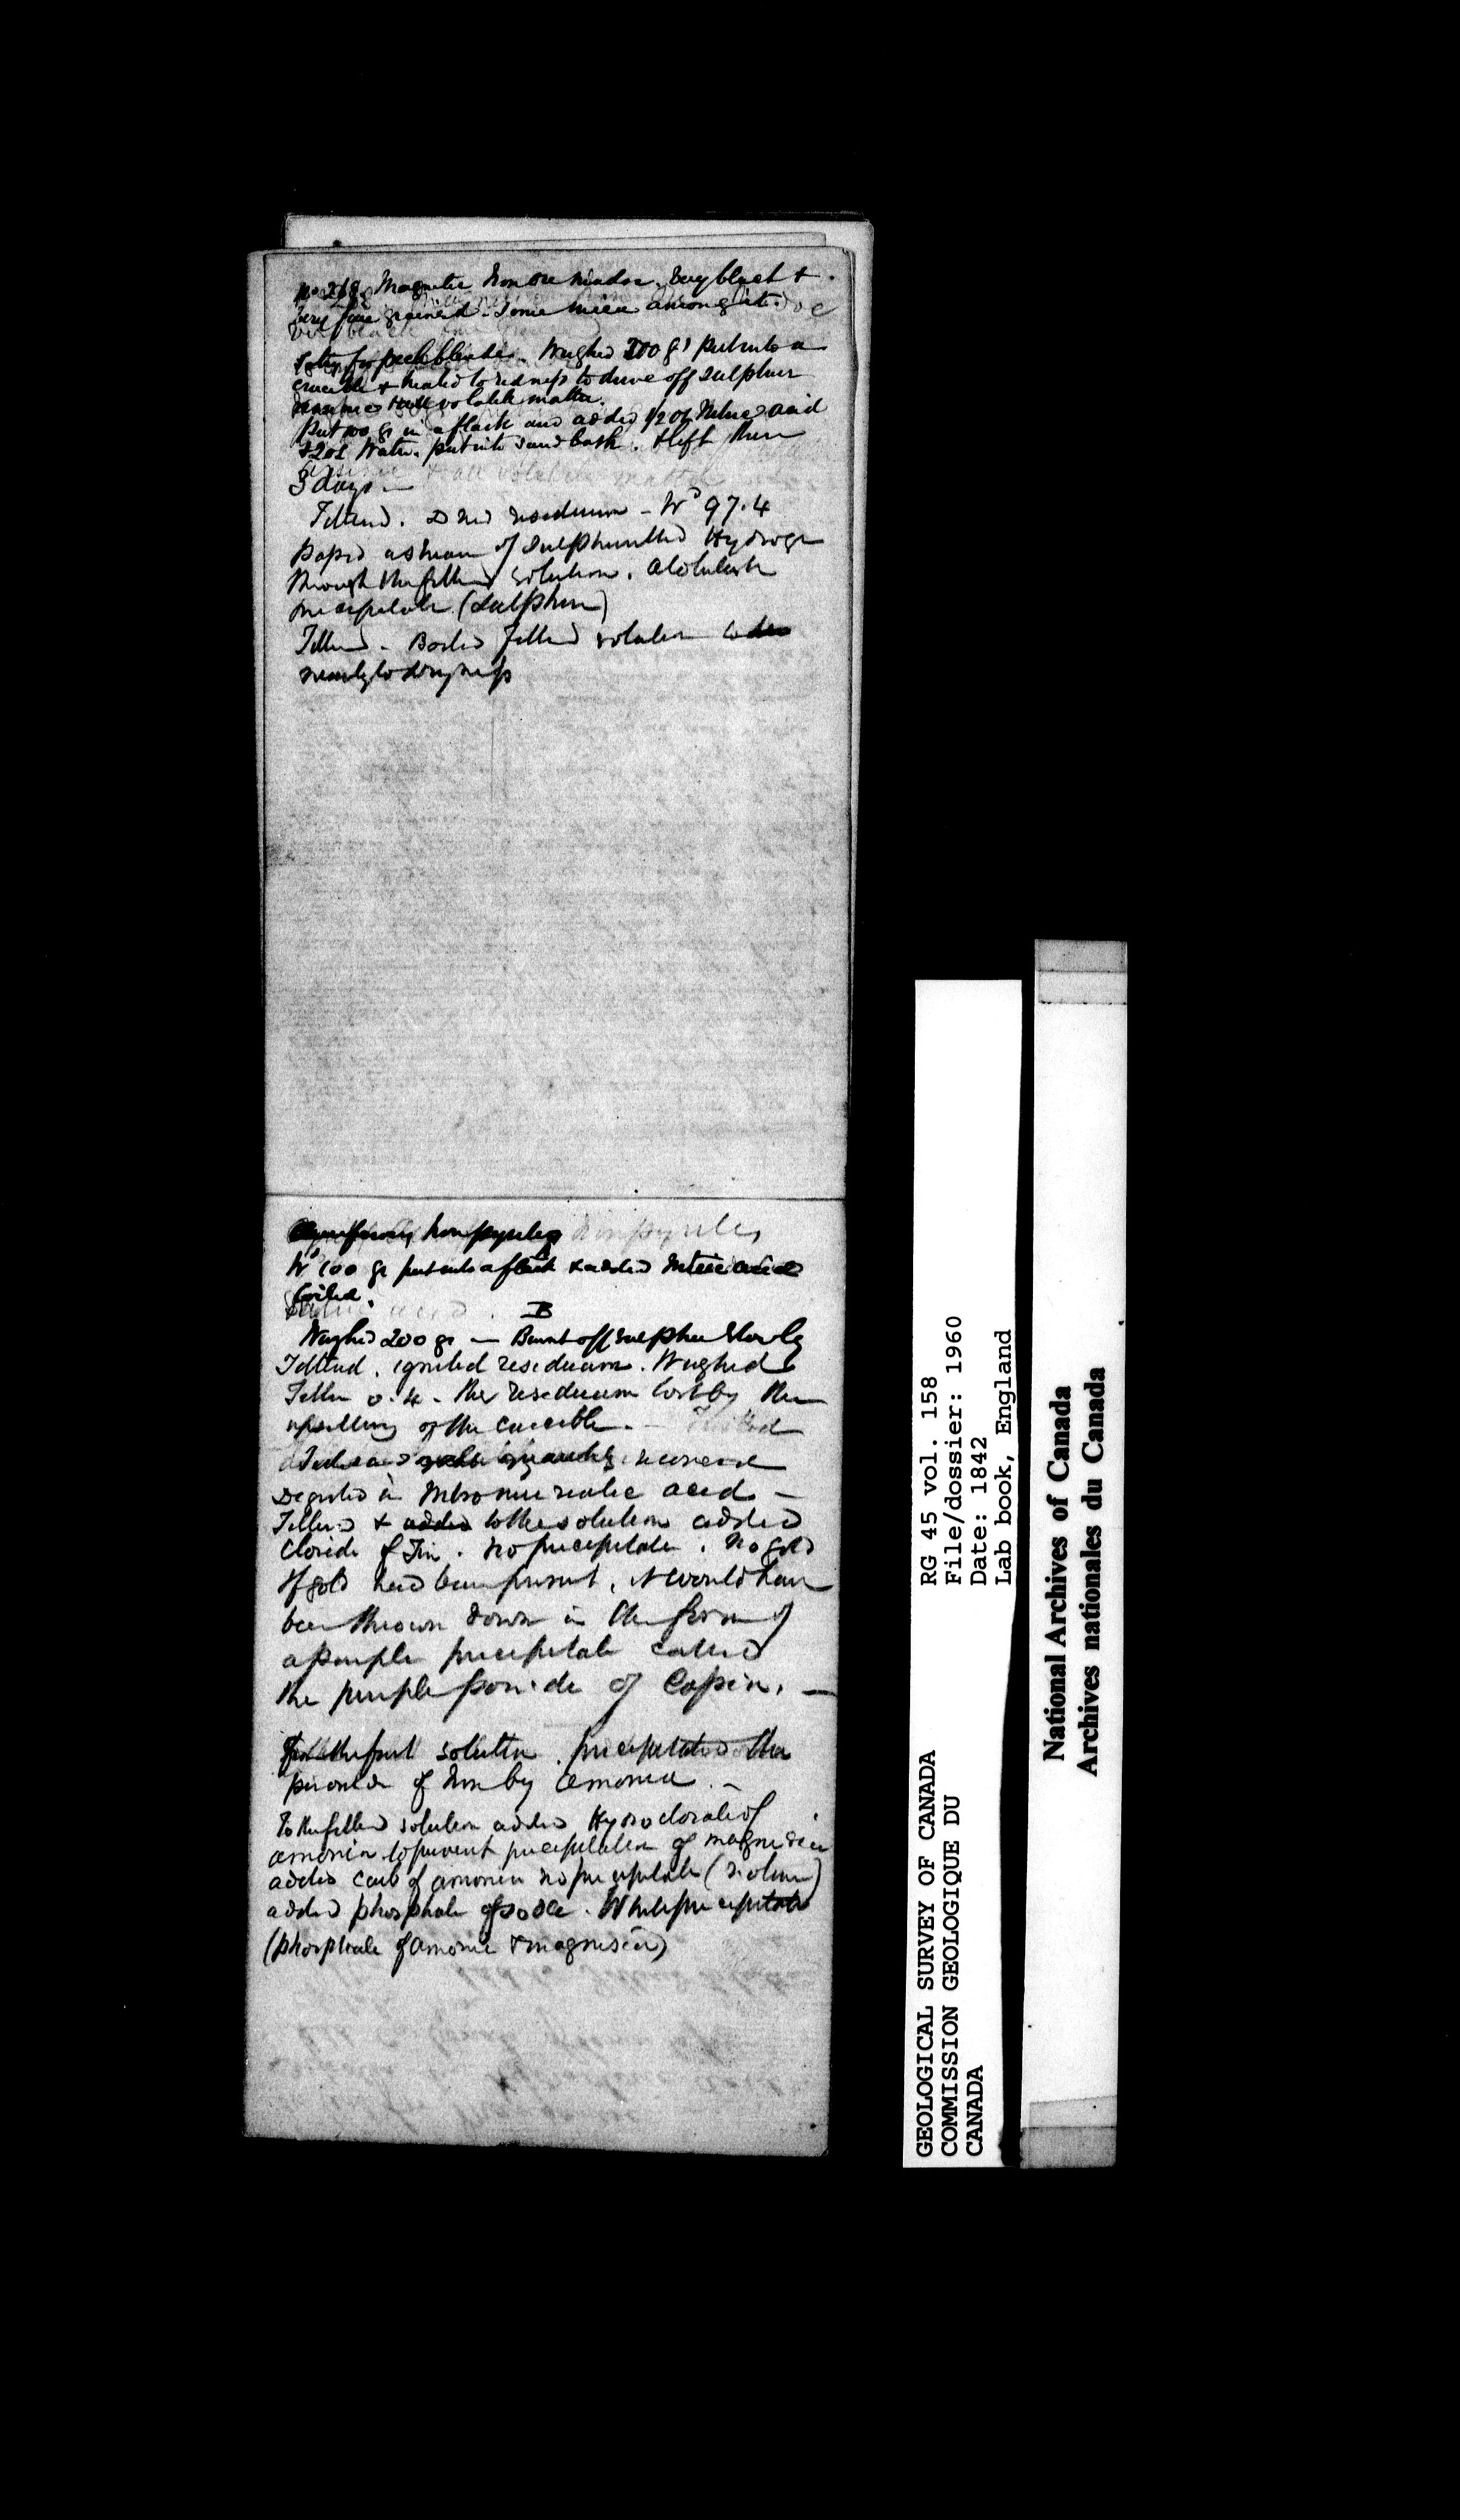 No 268 Magnetic Iron ore Hindoe. Very black &
very fine grained - Some mica amongst it.
Weighed 200 grs put into a
crucible & heated to redness to drive off Sulphur
& all volatile matter.
Put 100 gr in a flask and added 1/2 oz Nitric acid
& 2 oz Water. put into sand bath. & left there
3 days —
Filtered. Dried residuum - Wd 97.4
passed a stream of Sulphuretted Hydrogen
through the filtered solution.
precipitate (Sulphur)
Filtered - Boiled filtered solution
nearly to dryness
Iron pyrites
Wd 100 gr put into a flask & added Nitric acid
boiled.
B
Weighed 200 gr — Burnt off Sulphur Slowly
Filtered. ignited residuum. Weighed
Filter 0.4 - the residuum lost by the
upsetting of the crucible. —
Digested in Nitro muriatic acid —
Filtered & added to the solution added
Cloride of Tin. No precipitate. No gold
If gold had been present, it would have
been thrown down in the form of
a purple precipitate called
the purple powder of Cassius. —
first solution. precipitated the
peroxide of Iron by Amonia. —
To the filtered solution added Hydroclorate of
amonia to prevent precipitation of magnesia
added Carb of amonia no precipitate (no lime)
added phosphate of soda. White precipitate
(phosphate of Amonia & magnesia)
GEOLOGICAL SURVEY OF CANADA
COMMISSION GEOLOGIQUE DU
CANADA
RG 45 vol. 158
File/dossier: 1960
Date: 1842
Lab book, England
National Archives of Canada
Archives nationales du Canada